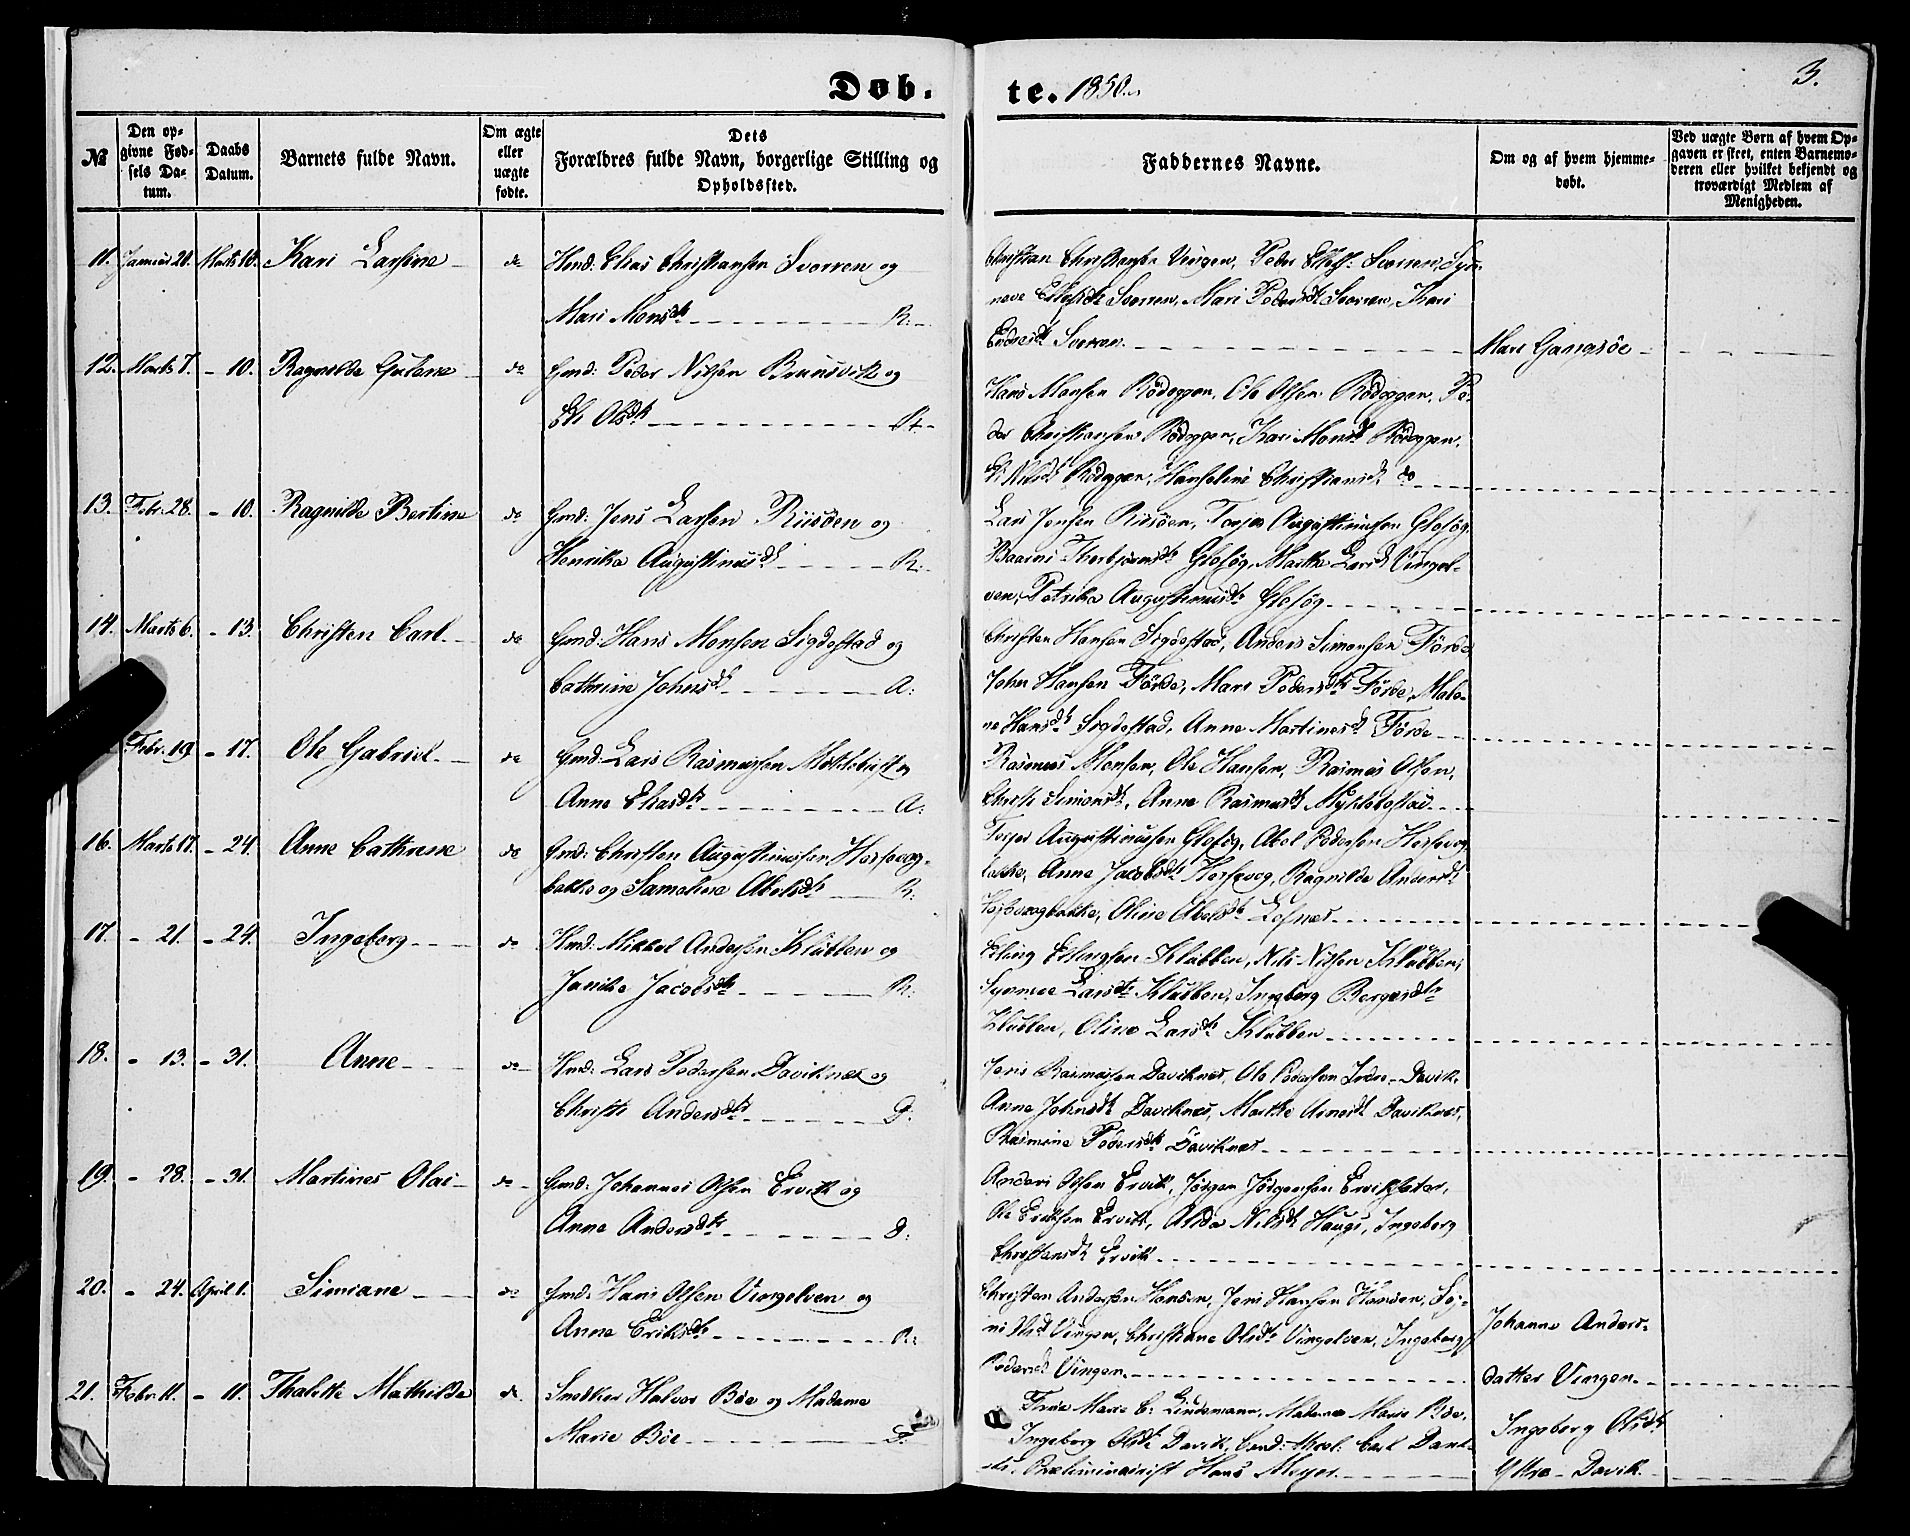 Døb-
te. 1850.
3.
No
Den op-
givne Fød-
sels Da-
tum.
Daabs
Datum.
Barnets fulde Navn.
Om ægte
eller
uægte
fødte.
Dets
Forældres fulde Navn, borgerlige Stilling og
Opholdssted.
Faddernes Navne.
Om og af hvem hjemme-
døbt.
Ved uægte Børn af hvem Op-
gaven er skeet, enten Barnemo-
deren eller hvilket bekjendt og
troværdigt Medlem af
Menigheden.
11. Januar 20. Marts 10. Kari Larsine do Hmd: Elias Christiansen Svorren og
Mari Monsdtr R:
Christian Christiansen Vingen, Peder Svorren, Syn-
nøve Svorren, Mari Pedersdtr Svorren, Kari
Endresdtr Svorren
Mari Gangsøe
12. Marts 7. - 10. Ragnilde Gulene do Gmd: Peder Nilsen Brunsvik og
Eli Olsdtr
Hans Monsen Rødøggen, Ole Olsen Rødøggen, Pe-
der Christiansen Rødøggen, Kari Monsdtr Rødøggen,
Eli Nilsdtr Rødøggen, Hanseline Christiansdtr do
13. Febr. 28. - 10. Ragnilde Bertine do Gmd: Jens Larsen Riisøen og
Henrika Augustinusdtr R:
Lars Jensen Riisøen, Torjer Augustinussen Gloføg,
Thorbjørnsdtr Gloføg, Marthe Larsdtr Vingel-
ven, Petrika Augustinusdtr Gloføg
14. Marts 6. - 13. Christen Carl do Gmd: Hans Monsen Sigdestad og
Cathrine Johnsdtr A:
Christen Hansen Sigdestad, Anders Simonsen Førde
John Hansen Førde, Mari Pedersdtr Førde, Male-
ne Hansdtr Sigdestad, Anne Martinesdtr Førde
Febr. 19. - 17. Ole Gabriel do Gmd: Lars Rasmussen og
Anne Eliasdtr A:
Rasmus Monsen, Ole Hansen, Rasmus Olsen,
Christi Simonsdtr, Anne Rasmusdtr Myklebstad
16. Marts 17. - 24. Anne Cathrine do Gmd: Christen Augustinussen Hessevog-
bakke og Samoline Abelsdtr R:
Torjer Augustinussen Gloføg, Abel Pedersen Hessevog
bakke, Anne Jacobsdtr Hessevog, Ragnilde Andersdtr
Hessevogbakke, Oline Abelsdtr
17. - 21. - 24. Ingeborg do Hmd: Mikkel Andersen Klubben og
Janike Jacobsdtr R:
Elling Ellingsen Klubben, Nils Nilsen Klubben,
Synneve Larsdtr Klubben, Ingeborg Bergesdtr
Klubben, Oline Larsdtr Klubben
18. - 13. - 31. Anne do Hmd: Lars Pedersen Daviknes og
Christi Andersdtr D:
Jens Rasmussen Daviknes, Ole Pedersen Indre-Davik,
Anne Johnsdtr Daviknes, Marthe Daviknes,
Rasmine Pedersdtr Daviknes
19. - 28. - 31. Martines Olai do Gmd: Johannes Olsen Ervik og
Anne Andersdtr D:
Anders Olsen Ervik, Jørgen Jørgensen Erviksæter,
Ole Eriksen Ervik, Alida Nilsdtr Hauge, Ingeborg
Christensdtr Ervik
20. - 24. April 1. Simiane do Gmd: Hans Olsen Vingelven og
Anne Eriksdtr R:
Christen Andersen Hansøen, Jens Hansen Hansøen, Sig-
ni Vingen, Christiane Olsdtr Vingelven, Ingeborg
Pedersdtr Vingen
Johanne Anders-
datter Vingen
21. Febr. 11. - 11. Thalette Mathilde do Snedker Halvor Bøe og Madame
Marie Bøe D:
Frue Marie C: Lindemann, Madame Marie Bøe,
Ingeborg Olsdtr Davik, Cand: theol: Carl
Præliminairist Hans Meyer
Ingeborg Olsdtr
Yttre-Davik